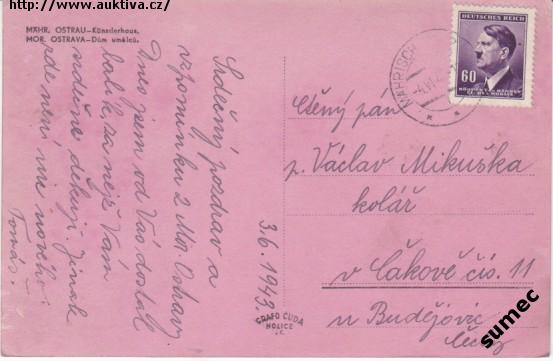 http://www.auktiva.cz/
MÄHR. OSTRAU—Künstlerhaus.
MOR. OSTRAVA—Dům umělců.
Srdečný pozdrav a
vzpomínku z Mor. Ostravy.
Dnes jsem od Vás dostal
balík, za nějž Vám
srdečně děkuji. Jinak
zde není nic nového.
Tomáš.
3.6.1943.
GRAFO ČUDA
HOLICE
DEUTSCHES REICH
60
BÖHMEN U. MÄHREN
ČECHY A MORAVA
MÄHRISCH
Ctěný pán
p. Václav Mikuška
kolář
v Čakově čís. 11
u Budějovic
Čechy
sumec